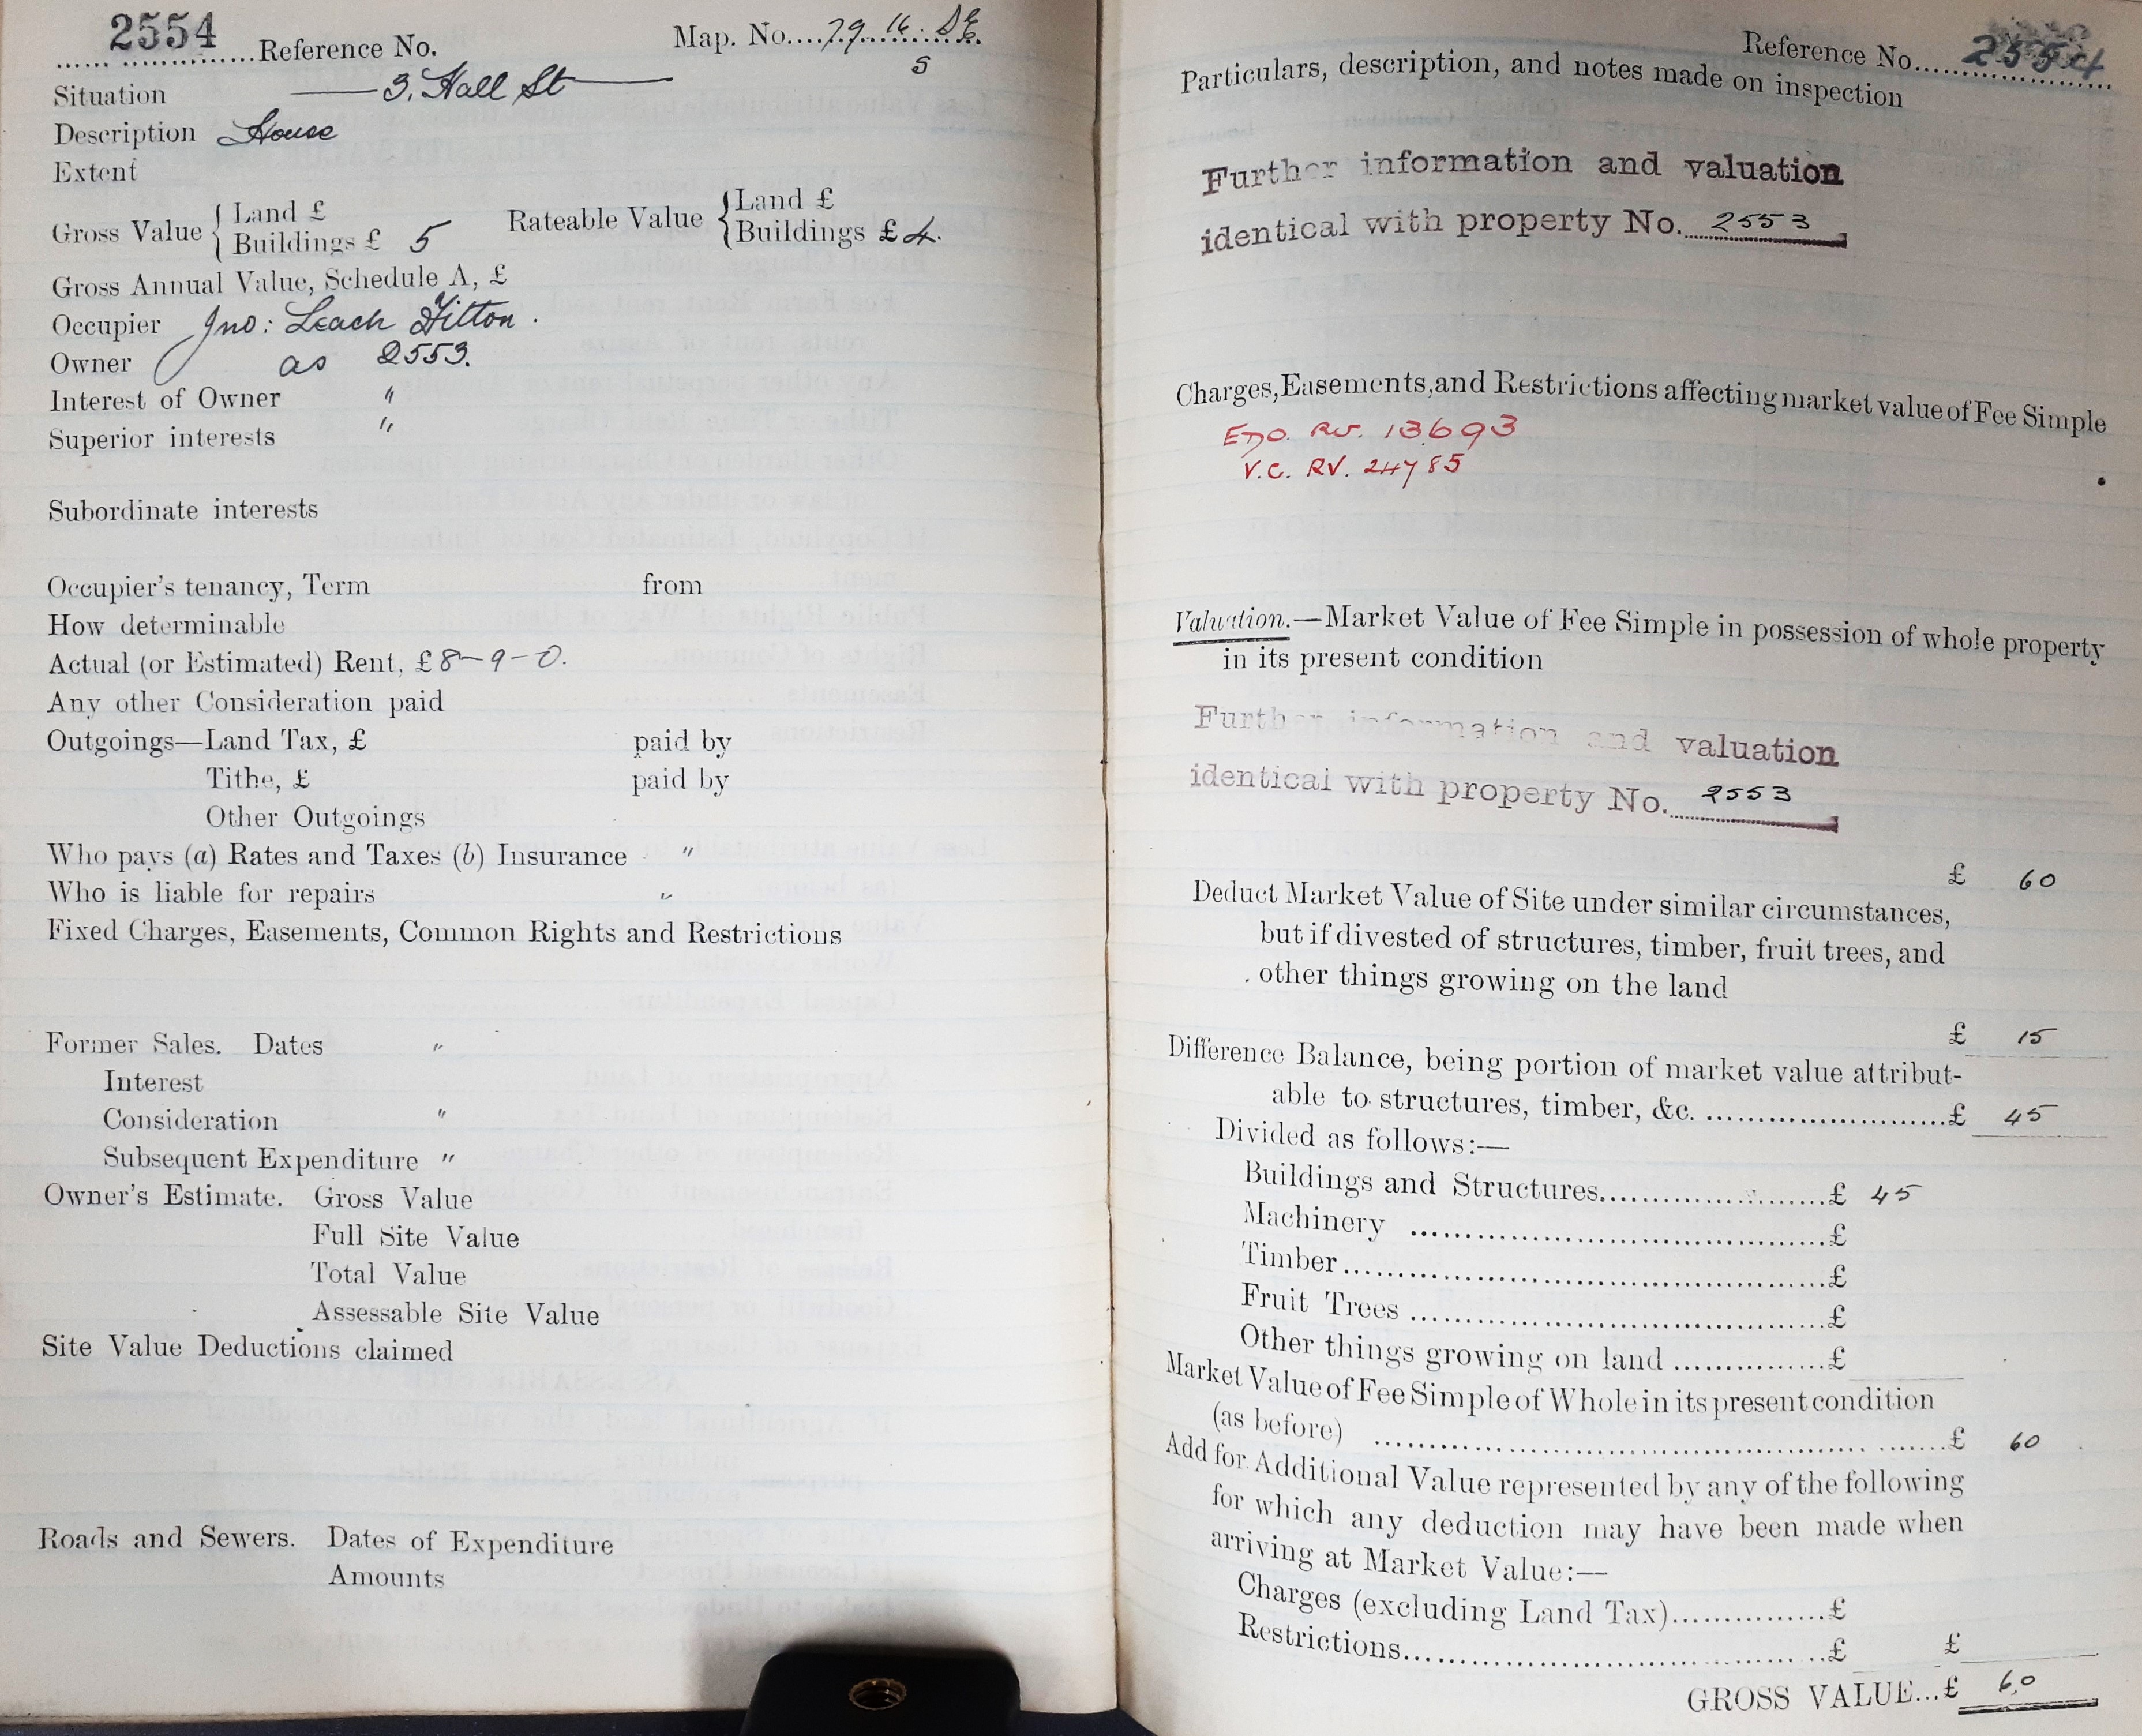 2554 Reference No. Map. No. 79. 16. S.E.
S
Situation 3, Hall St
Description House
Extent
Gross Value { Land £
Buildings £ 5
Rateable Value { Land £
Buildings £ 4.
Gross Annual Value, Schedule A, £
Occupier Jno: Leach Fitton.
Owner as 2553.
Interest of Owner "
Superior interests "
Subordinate interests
Occupier's tenancy, Term from
How determinable
Actual (or Estimated) Rent, £ 8-9-0.
Any other Consideration paid
Outgoings—Land Tax, £ paid by
Tithe, £ paid by
Other Outgoings
Who pays (a) Rates and Taxes (b) Insurance "
Who is liable for repairs "
Fixed Charges, Easements, Common Rights and Restrictions
Former Sales. Dates "
Interest
Consideration "
Subsequent Expenditure "
Owner's Estimate. Gross Value
Full Site Value
Total Value
Assessable Site Value
Site Value Deductions claimed
Roads and Sewers. Dates of Expenditure
Amounts
Reference No. 2554
Particulars, description, and notes made on inspection
Further information and valuation
identical with property No. 2553
Charges, Easements, and Restrictions affecting market value of Fee Simple
RV. 13693
V.C. RV. 24785
Valuation.—Market Value of Fee Simple in possession of whole property
in its present condition
Further information and valuation
identical with property No. 2553
£ 60
Deduct Market Value of Site under similar circumstances,
but if divested of structures, timber, fruit trees, and
other things growing on the land
£ 15
Difference Balance, being portion of market value attribut-
able to structures, timber, &c. £ 45
Divided as follows:—
Buildings and Structures £ 45
Machinery £
Timber £
Fruit Trees £
Other things growing on land £
Market Value of Fee Simple of Whole in its present condition
(as before) £ 60
Add for Additional Value represented by any of the following
for which any deduction may have been made when
arriving at Market Value:—
Charges (excluding Land Tax) £
Restrictions £ £
GROSS VALUE...£ 60